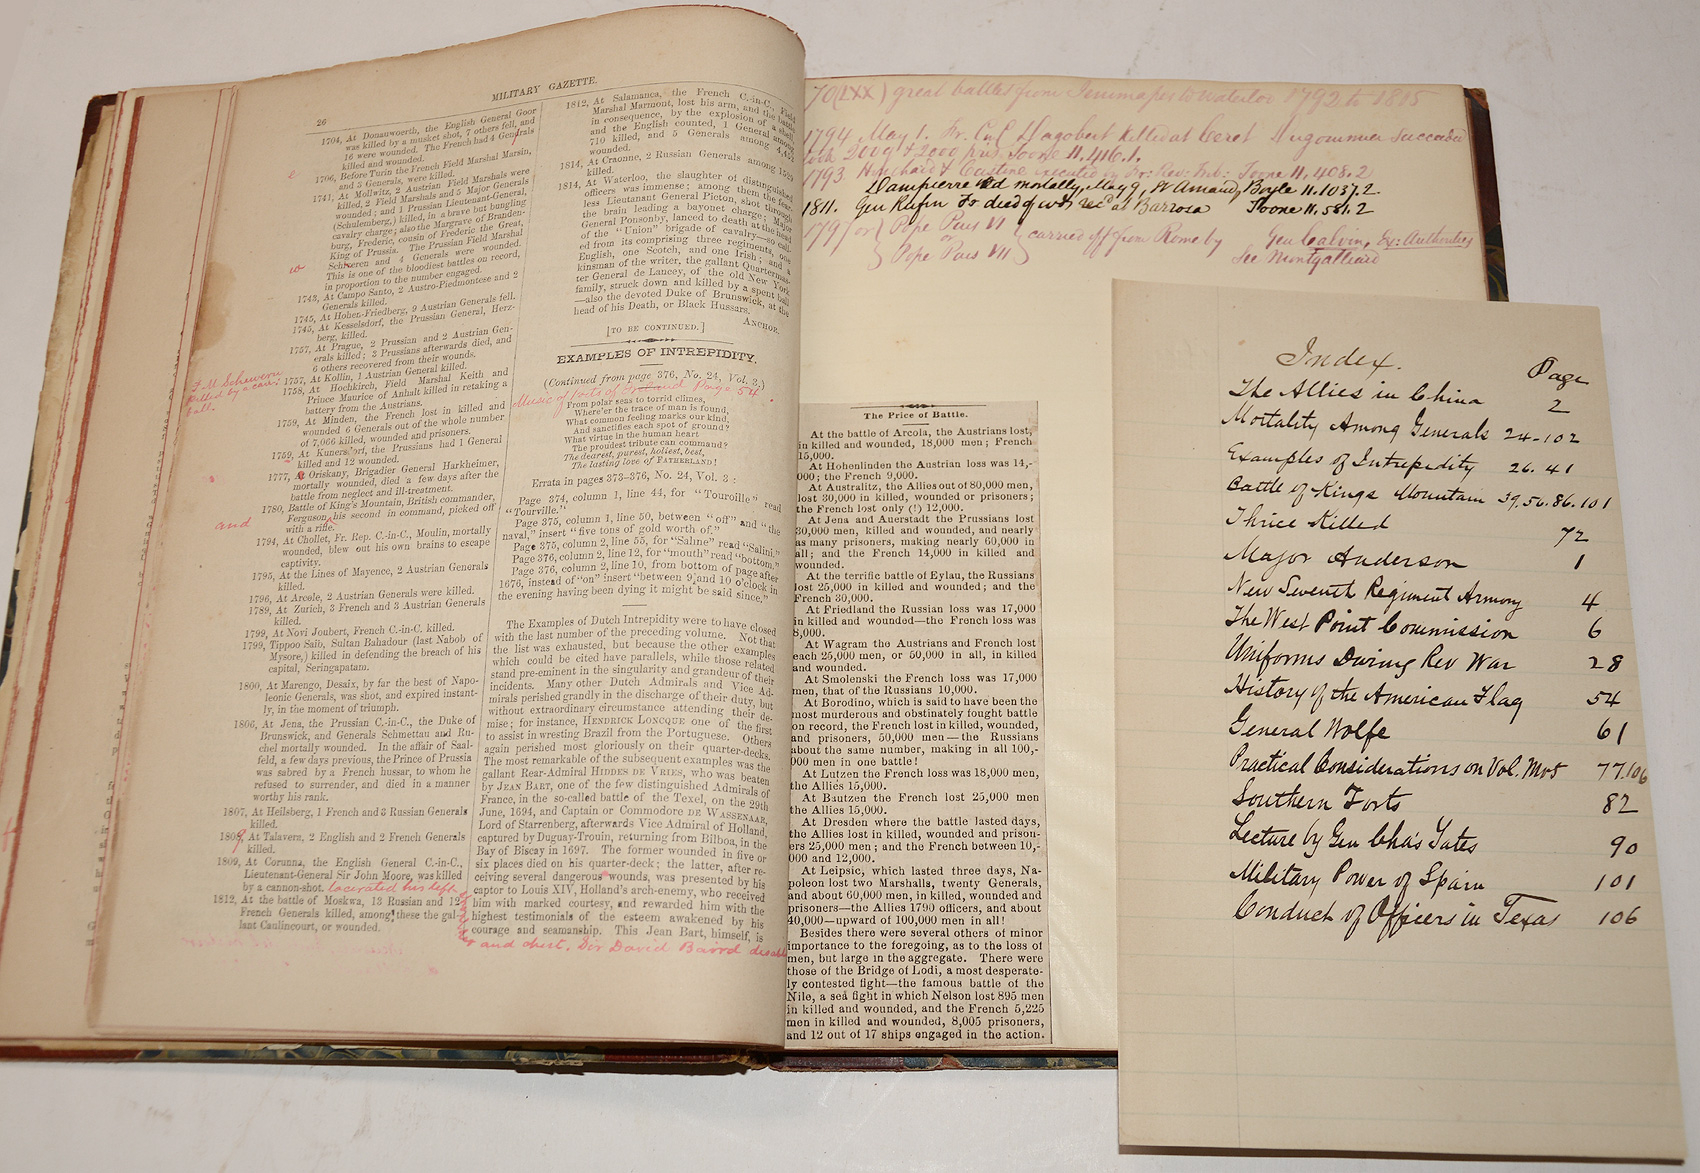 MILITARY GAZETTE.
26
1704, At Donauwoerth, the English General Goor
was killed by a musket shot, 7 others fell, and
16 were wounded. The French had 4 Generals
killed and wounded.
1706, Before Turin the French Field Marshal Marsin,
and 5 Generals, were killed.
e
1741, At Mollwitz, 2 Austrian Field Marshals were
killed, 2 Field Marshals and 5 Major Generals,
wounded; and 1 Prussian Lieutenant-General,
(Schulenberg,) killed, in a brave but bungling
cavalry charge; also the Margrave of Branden-
burg, Frederic, cousin of Frederic the Great,
King of Prussia. The Prussian Field Marshal
and 4 Generals were wounded.
This is one of the bloodiest battles on record,
in proportion to the number engaged.
w
1743, At Campo Santo, 2 Austro-Piedmontese and 2
Generals killed.
1745, At Hohen-Friedberg, 9 Austrian Generals fell.
1745, At Kesselsdorf, the Prussian General, Herz-
berg, killed.
1757, At Prague, 2 Prussian and 2 Austrian Gen-
erals killed; 3 Prussians afterwards died, and
6 others recovered from their wounds.
1757, At Kollin, 1 Austrian General killed.
F. M. Schwerin
killed by a can:
ball.
1758, At Hochkirch, Field Marshal Keith and
Prince Maurice of Anhalt killed in retaking a
battery from the Austrians.
1759, At Minden, the French lost in killed and
wounded 6 Generals out of the whole number
of 7,066 killed, wounded and prisoners.
1759, At Kunersdorf, the Prussians had 1 General
killed and 12 wounded.
1777, At Oriskany, Brigadier General Harkheimer,
mortally wounded, died a few days after the
battle from neglect and ill-treatment.
1780, Battle of King's Mountain, British commander,
Ferguson, his second in command, picked off
with a rifle.
and
1794, At Chollet, Fr. Rep. C.-in-C., Moulin, mortally
wounded, blew out his own brains to escape
captivity.
1795, At the Lines of Mayence, 2 Austrian Generals
killed.
1796, At Arcole, 2 Austrian Generals were killed.
1789, At Zurich, 3 French and 3 Austrian Generals
killed.
1799, At Novi Joubert, French C.-in-C. killed.
1799, Tippoo Saib, Sultan Bahadour (last Nabob of
Mysore,) killed in defending the breach of his
capital, Seringapatam.
1800, At Marengo, Desaix, by far the best of Napo-
leonic Generals, was shot, and expired instant-
ly, in the moment of triumph.
1806, At Jena, the Prussian C.-in-C., the Duke of
Brunswick, and Generals Schmettau and Ru-
chel mortally wounded. In the affair of Saal-
feld, a few days previous, the Prince of Prussia
was sabred by a French hussar, to whom he
refused to surrender, and died in a manner
worthy his rank.
1807, At Heilsberg, 1 French and 3 Russian Generals
killed.
1809, At Talavera, 2 English and 2 French Generals
killed.
1809, At Corunna, the English General C.-in-C.,
Lieutenant-General Sir John Moore, was killed
by a cannon-shot. lacerated his left
1812, At the battle of Moskwa, 13 Russian and 12
French Generals killed, among these the gal-
lant Caulincourt, or wounded.
shoulder
and chest. Sir David Baird disabl
1812, At Salamanca, the French C.-in-C., Field
Marshal Marmont, lost his arm, and the battle
in consequence, by the explosion of a shell,
and the English counted, 1 General among
710 killed, and 5 Generals among 4,422
wounded.
1814, At Craonne, 2 Russian Generals among 1529
killed.
1814, At Waterloo, the slaughter of distinguished
officers was immense; among them the fear-
less Lieutenant General Picton, shot through
the brain leading a bayonet charge; Major
General Ponsonby, lanced to death at the head
of the "Union" brigade of cavalry—so call-
ed from its comprising three regiments, one
English, one Scotch, and one Irish; and a
kinsman of the writer, the gallant Quartermas-
ter General de Lancey, of the old New York
family, struck down and killed by a spent ball
—also the devoted Duke of Brunswick, at the
head of his Death, or Black Hussars.
ANCHOR.
[TO BE CONTINUED.]
EXAMPLES OF INTREPIDITY.
(Continued from page 376, No. 24, Vol. 3.)
Page 54.
From polar seas to torrid climes,
Where'er the trace of man is found,
What common feeling marks our kind,
And sanctifies each spot of ground?
What virtue in the human heart
The proudest tribute can command?
The dearest, purest, holiest, best,
The lasting love of FATHERLAND!
Errata in pages 373-376, No. 24, Vol. 3:
Page 374, column 1, line 44, for "Touroille" read
"Tourville."
Page 375, column 1, line 50, between "off" and "the
naval," insert "five tons of gold worth of."
Page 375, column 2, line 55, for "Salme" read "Salini."
Page 376, column 2, line 12, for "mouth" read "bottom."
Page 376, column 2, line 10, from bottom of page after
1676, instead of "on" insert "between 9 and 10 o'clock in
the evening having been dying it might be said since."
The Examples of Dutch Intrepidity were to have closed
with the last number of the preceding volume. Not that
the list was exhausted, but because the other examples
which could be cited have parallels, while those related
stand pre-eminent in the singularity and grandeur of their
incidents. Many other Dutch Admirals and Vice Ad-
mirals perished grandly in the discharge of their duty, but
without extraordinary circumstance attending their de-
mise; for instance, HENDRICK LONCQUE one of the first
to assist in wresting Brazil from the Portuguese. Others
again perished most gloriously on their quarter-decks.
The most remarkable of the subsequent examples was the
gallant Rear-Admiral HIDDES DE VRIES, who was beaten
by JEAN BART, one of the few distinguished Admirals of
France, in the so-called battle of the Texel, on the 29th
June, 1694, and Captain or Commodore DE WASSENAAR,
Lord of Starrenberg, afterwards Vice Admiral of Holland,
captured by Duguay-Trouin, returning from Bilboa, in the
Bay of Biscay in 1697. The former wounded in five or
six places died on his quarter-deck; the latter, after re-
ceiving several dangerous wounds, was presented by his
captor to Louis XIV, Holland's arch-enemy, who received
him with marked courtesy, and rewarded him with the
highest testimonials of the esteem awakened by his
courage and seamanship. This Jean Bart, himself, is
70 (LXX) great battles from Jemmapes to Waterloo 1792 to 1815
1794 May 1. Fr. Dagobert killed at Ceret Dugommier succeeded
took 200g & 2000 pris. Toone 11.416.1.
1793 Houchard & Custine executed by Fr: Rev: Trib: Toone 11.408.2
Dampierre wd mortally, May 9, St Amand, Boyle 11.1037.2
1811. Gen Rufin Fr died of wds recd at Barrosa Toone 11.581.2
1797 or { Pope Pius VI
or
Pope Pius VII } carried off from Rome by Gen Calvin, Ex: Authorities
See Montgalliard
The Price of Battle.
At the battle of Arcola, the Austrians lost,
in killed and wounded, 18,000 men; French
15,000.
At Hohenlinden the Austrian loss was 14,-
000; the French 9,000.
At Australitz, the Allies out of 80,000 men,
lost 30,000 in killed, wounded or prisoners;
the French lost only (!) 12,000.
At Jena and Auerstadt the Prussians lost
30,000 men, killed and wounded, and nearly
as many prisoners, making nearly 60,000 in
all; and the French 14,000 in killed and
wounded.
At the terrific battle of Eylau, the Russians
lost 25,000 in killed and wounded; and the
French 30,000.
At Friedland the Russian loss was 17,000
in killed and wounded—the French loss was
8,000.
At Wagram the Austrians and French lost
each 25,000 men, or 50,000 in all, in killed
and wounded.
At Smolenski the French loss was 17,000
men, that of the Russians 10,000.
At Borodino, which is said to have been the
most murderous and obstinately fought battle
on record, the French lost in killed, wounded,
and prisoners, 50,000 men—the Russians
about the same number, making in all 100,-
000 men in one battle!
At Lutzen the French loss was 18,000 men,
the Allies 15,000.
At Bautzen the French lost 25,000 men
the Allies 15,000.
At Dresden where the battle lasted days,
the Allies lost in killed, wounded and prison-
ers 25,000 men; and the French between 10,-
000 and 12,000.
At Leipsic, which lasted three days, Na-
poleon lost two Marshalls, twenty Generals,
and about 60,000 men, in killed, wounded and
prisoners—the Allies 1790 officers, and about
40,000—upward of 100,000 men in all!
Besides there were several others of minor
importance to the foregoing, as to the loss of
men, but large in the aggregate. There were
those of the Bridge of Lodi, a most desperate-
ly contested fight—the famous battle of the
Nile, a sea fight in which Nelson lost 895 men
in killed and wounded, and the French 5,225
men in killed and wounded, 8,005 prisoners,
and 12 out of 17 ships engaged in the action.
Index. Page
The Allies in China 2
Mortality Among Generals 24-102
Examples of Intrepidity 26.41
Battle of Kings Mountain 39.56.86.101
Thrice Killed 72
Major Anderson 1
New Seventh Regiment Armory 4
The West Point Commission 6
Uniforms During Rev War 28
History of the American Flag 54
General Wolfe 61
Practical Considerations on Vol. Mvt 77.106
Southern Forts 82
Lecture by Gen Cha's Yates 90
Military Power of Spain 101
Conduct of Officers in Texas 106